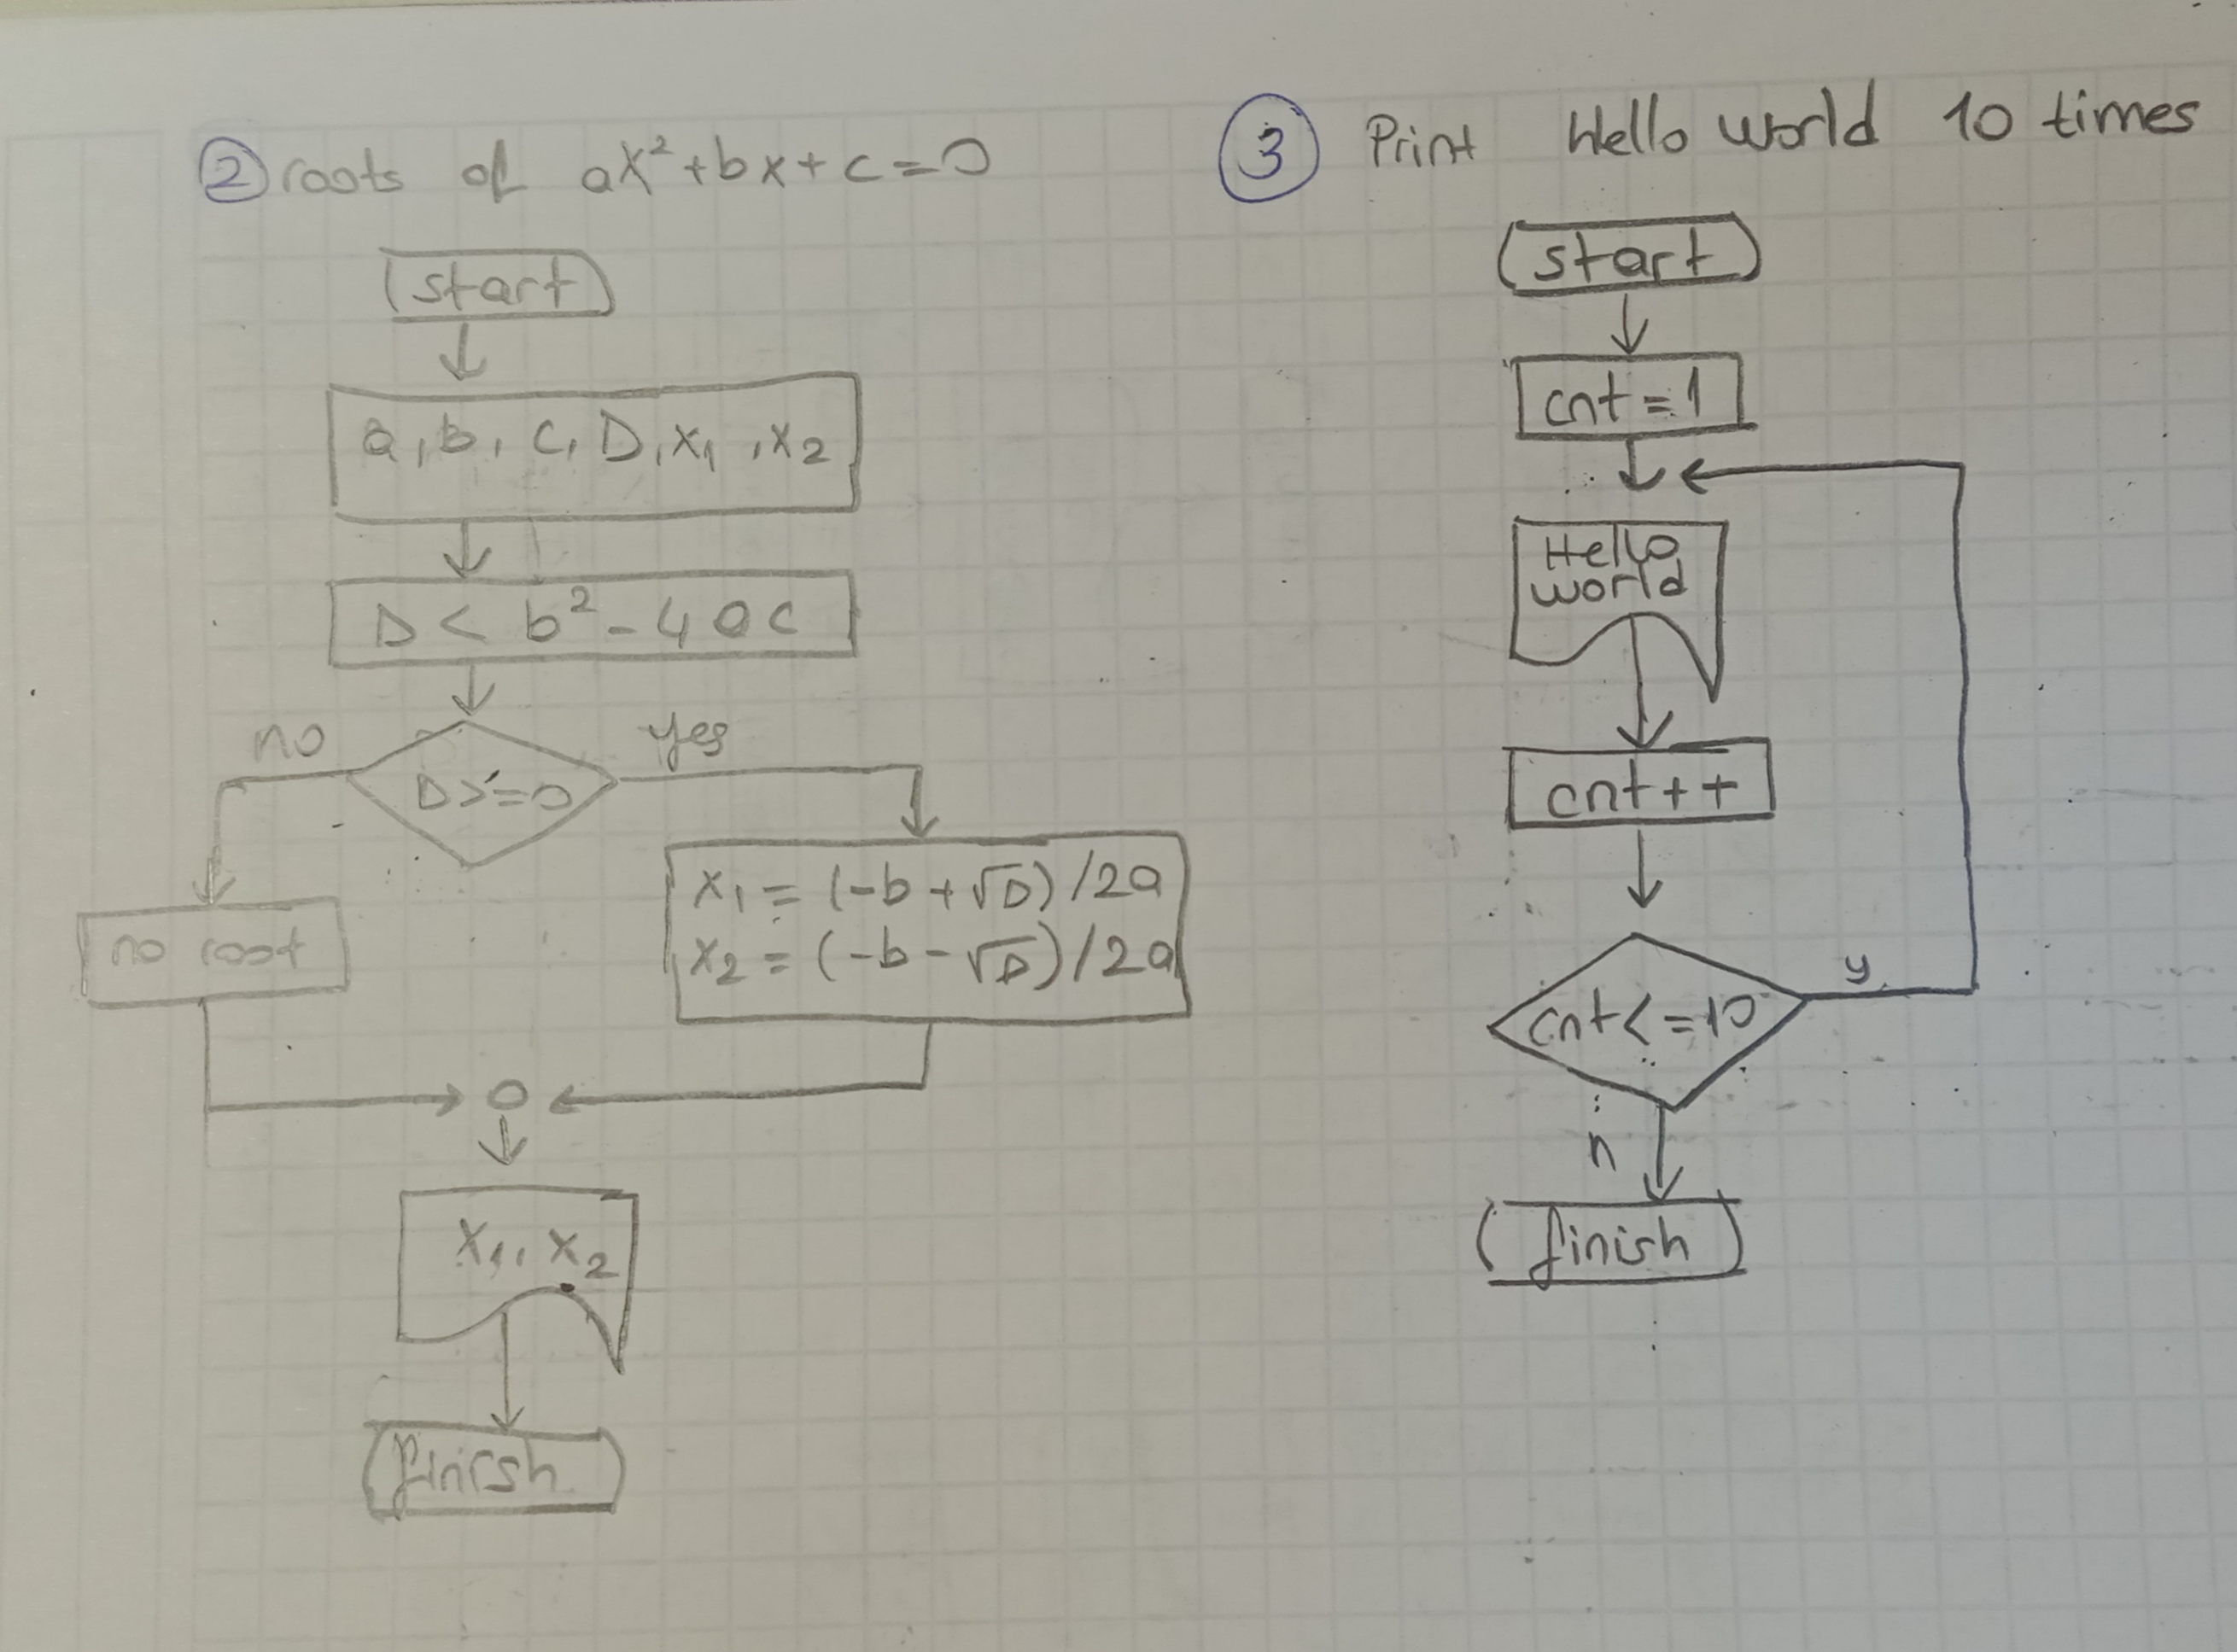 ② roots of ax²+bx+c=0
start
a, b, c, D, x₁, x₂
D < b²-4ac
no
yes
D>=0
no root
x₁ = (-b+√D)/2a
x₂ = (-b-√D)/2a
x₁, x₂
finish
③ Print Hello world 10 times
start
cnt=1
Hello
world
cnt++
cnt<=10
y
n
finish